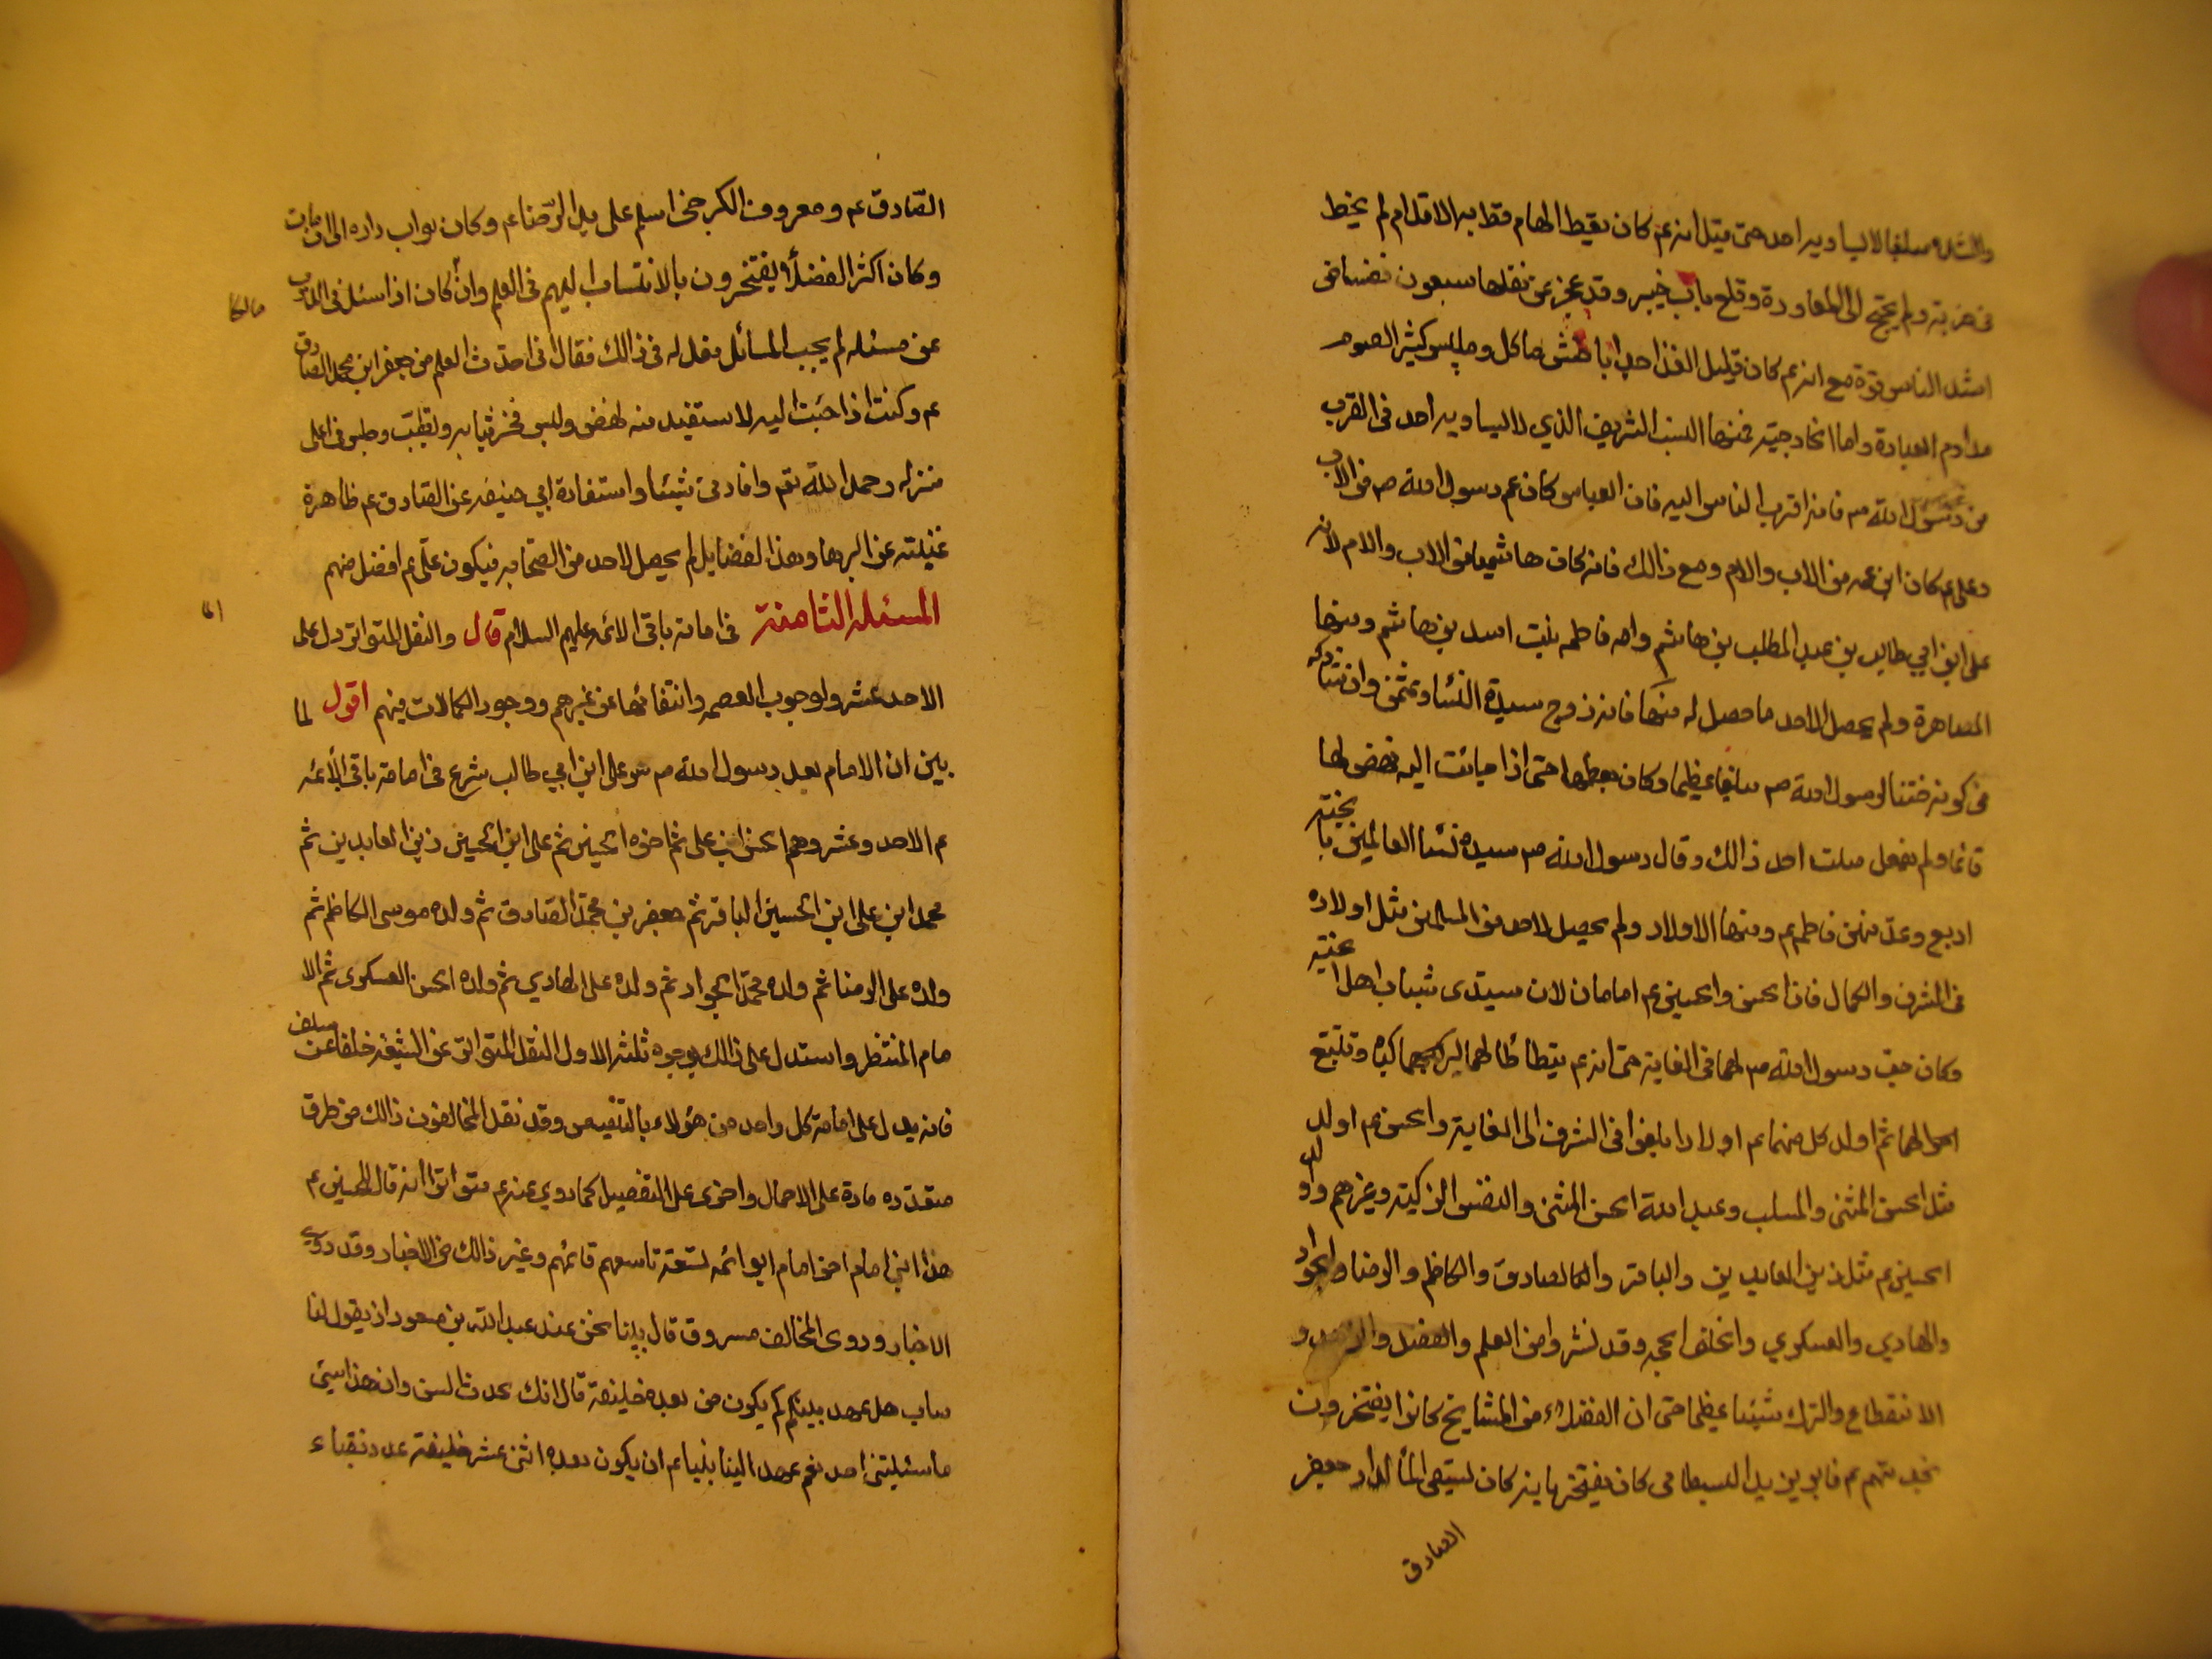 والشدة مبلغا لا يساويه احد حتى قيل انه عم كان يقيط الهام قط به الاقدام لم يخط
فى ضربته ولم يحتج الى المعاودة وقلع باب خيبر وقد عجز عن نقلها سبعون نفسا من
اشد الناس قوة مع انه عم كان قليل الغذا جدا با خشن ماكل وملبس كثير الصوم
مداوم العبادة واما الخارجيّه فمنها النسب الشريف الذي لا يساويه احد فى القرب
من رسول الله ص فانه اقرب الناس اليه فان العباس كان عم رسول الله ص من الاب
وعلى عم كان ابن عمه من الاب والام ومع ذالك فانه كان هاشميا من الاب والام لانه
على ابن ابي طالب بن عبد المطلب بن هاشم وامه فاطمه بنت اسد بن هاشم ومنها
المصاهرة ولم يحصل لاحد ما حصل له منها فانه زوج سيدة النسا وعثمن وان شاركه
فى كونه ختنا لرسول الله ص وكان يعظمها حتى اذا جائت اليه نهض لها
قائما ولم يفعل ببنت احد ذالك وقال رسول الله ص سيدة نسا العالمين با بجنته
اربع وعد منهن فاطم عم ومنها الاولاد ولم يحصل لاحد من المسلمين مثل اولاده
فى الشرف والكمال فان الحسن والحسين عم امامان لان سيدى شباب اهل الجنته
وكان حب رسول الله ص لهما فى الغاية حتى انه عم يتطاطا لهما ليركبهما كباه وتلبتع
احوالهما ثم اولد كل منهما عم اولادا بلغوا فى الشرف الى الغاية والحسن عم اولد
مثل الحسن المثنى والمسلب وعبد الله الحسن المثنى والنفس الزكيته وغيرهم واولد
الحسين عم مثل زين العابدين والباقر والصادق والكاظم والرضا والجواد
والهادي والعسكري والخلف الحجه وقد نشروا من العلم والفضل والزهد و
الانقطاع والترك شيئا عظيما حتى ان الفضلاء من المشايخ كانوا يفتخرون
بخدمتهم عم فابو يزيد البسطامى كان يفتخر بانه كان يسقى الماء لدار جعفر
الصادق
الصّادق عم ومعروف الكرخى اسلم على يد الرّضا عم وكان بواب داره الى ان مات
وكان اكثر الفضلأ يفتخرون بالانتساب اليهم فى العلم وان كان اذا سئل فى الدرب
مالكا
عن مسئله لم يجب المسائل فقيل له فى ذالك فقال انى اخذت العلم من جعفر ابن محمد الصادق
عم وكنت اذا جئت اليه لاستفيد منه نهض ولبس فخر ثيابه وتطيّب وجلس فى اعلى
منزله وحمد الله تعم وافادنى شيئا واستفادة ابي حنيفه عن الصّادق عم ظاهرة
غنيّته عن البرهان وهذا لفضايل لم يحصل لاحد من الصّحابه فيكون علّى عم افضل منهم
المسئله الثامنة فى امامة باقى الائمه عليهم السلام قال والنقل المتواتر دل على
الاحد عشر ولوجوب العصمه وانتفائها عن غيرهم ووجود الكمالات فيهم اقول لما
بين ان الامام بعد رسول الله ص على ابن ابي طالب شرع فى امامة باقى الأئمه
عم الاحد وعشر وهم الحسن ابن على ثم اخوه الحسين ثم على ابن الحسين زين العابدين ثم
محمد ابن على ابن الحسين الباقر ثم جعفر بن محمّد الصّادق ثم ولده موسى الكاظم ثم
ولده على الرضا ثم ولده محمّد الجواد ثم ولده على الهادي ثم ولده الحسن العسكرى ثم الا
مام المنتظر واستدل على ذالك بوجوه ثلثه الاول النقل المتواتر عن الشيعه خلفا عن سلف
فانه يدل على امامة كل واحد من هؤلاء بالتنصيص وقد نقل المخالفون ذالك من طرق
متعدّده مارة على الاجمال واخرى على التفصيل كما روي عنه عم متواترا انه قال للحسين عم
هذا ابنى امام اخ امام ابو ائمه تسعة تاسعهم قائمهم وغير ذالك من الاخبار وقد روى
الاخبار وروى المخالف مسروق قال بينا نحن عند عبد الله بن مسعود اذ يقول لنا
ساب هل عهد نبيكم كم يكون من بعده خليفة قال انك لحدث السن وان هذا شئ
ماسئيلتنى احد نعم عهد الينا نبينا عم ان يكون بعده اثنى عشر خليفته عدد نقباء